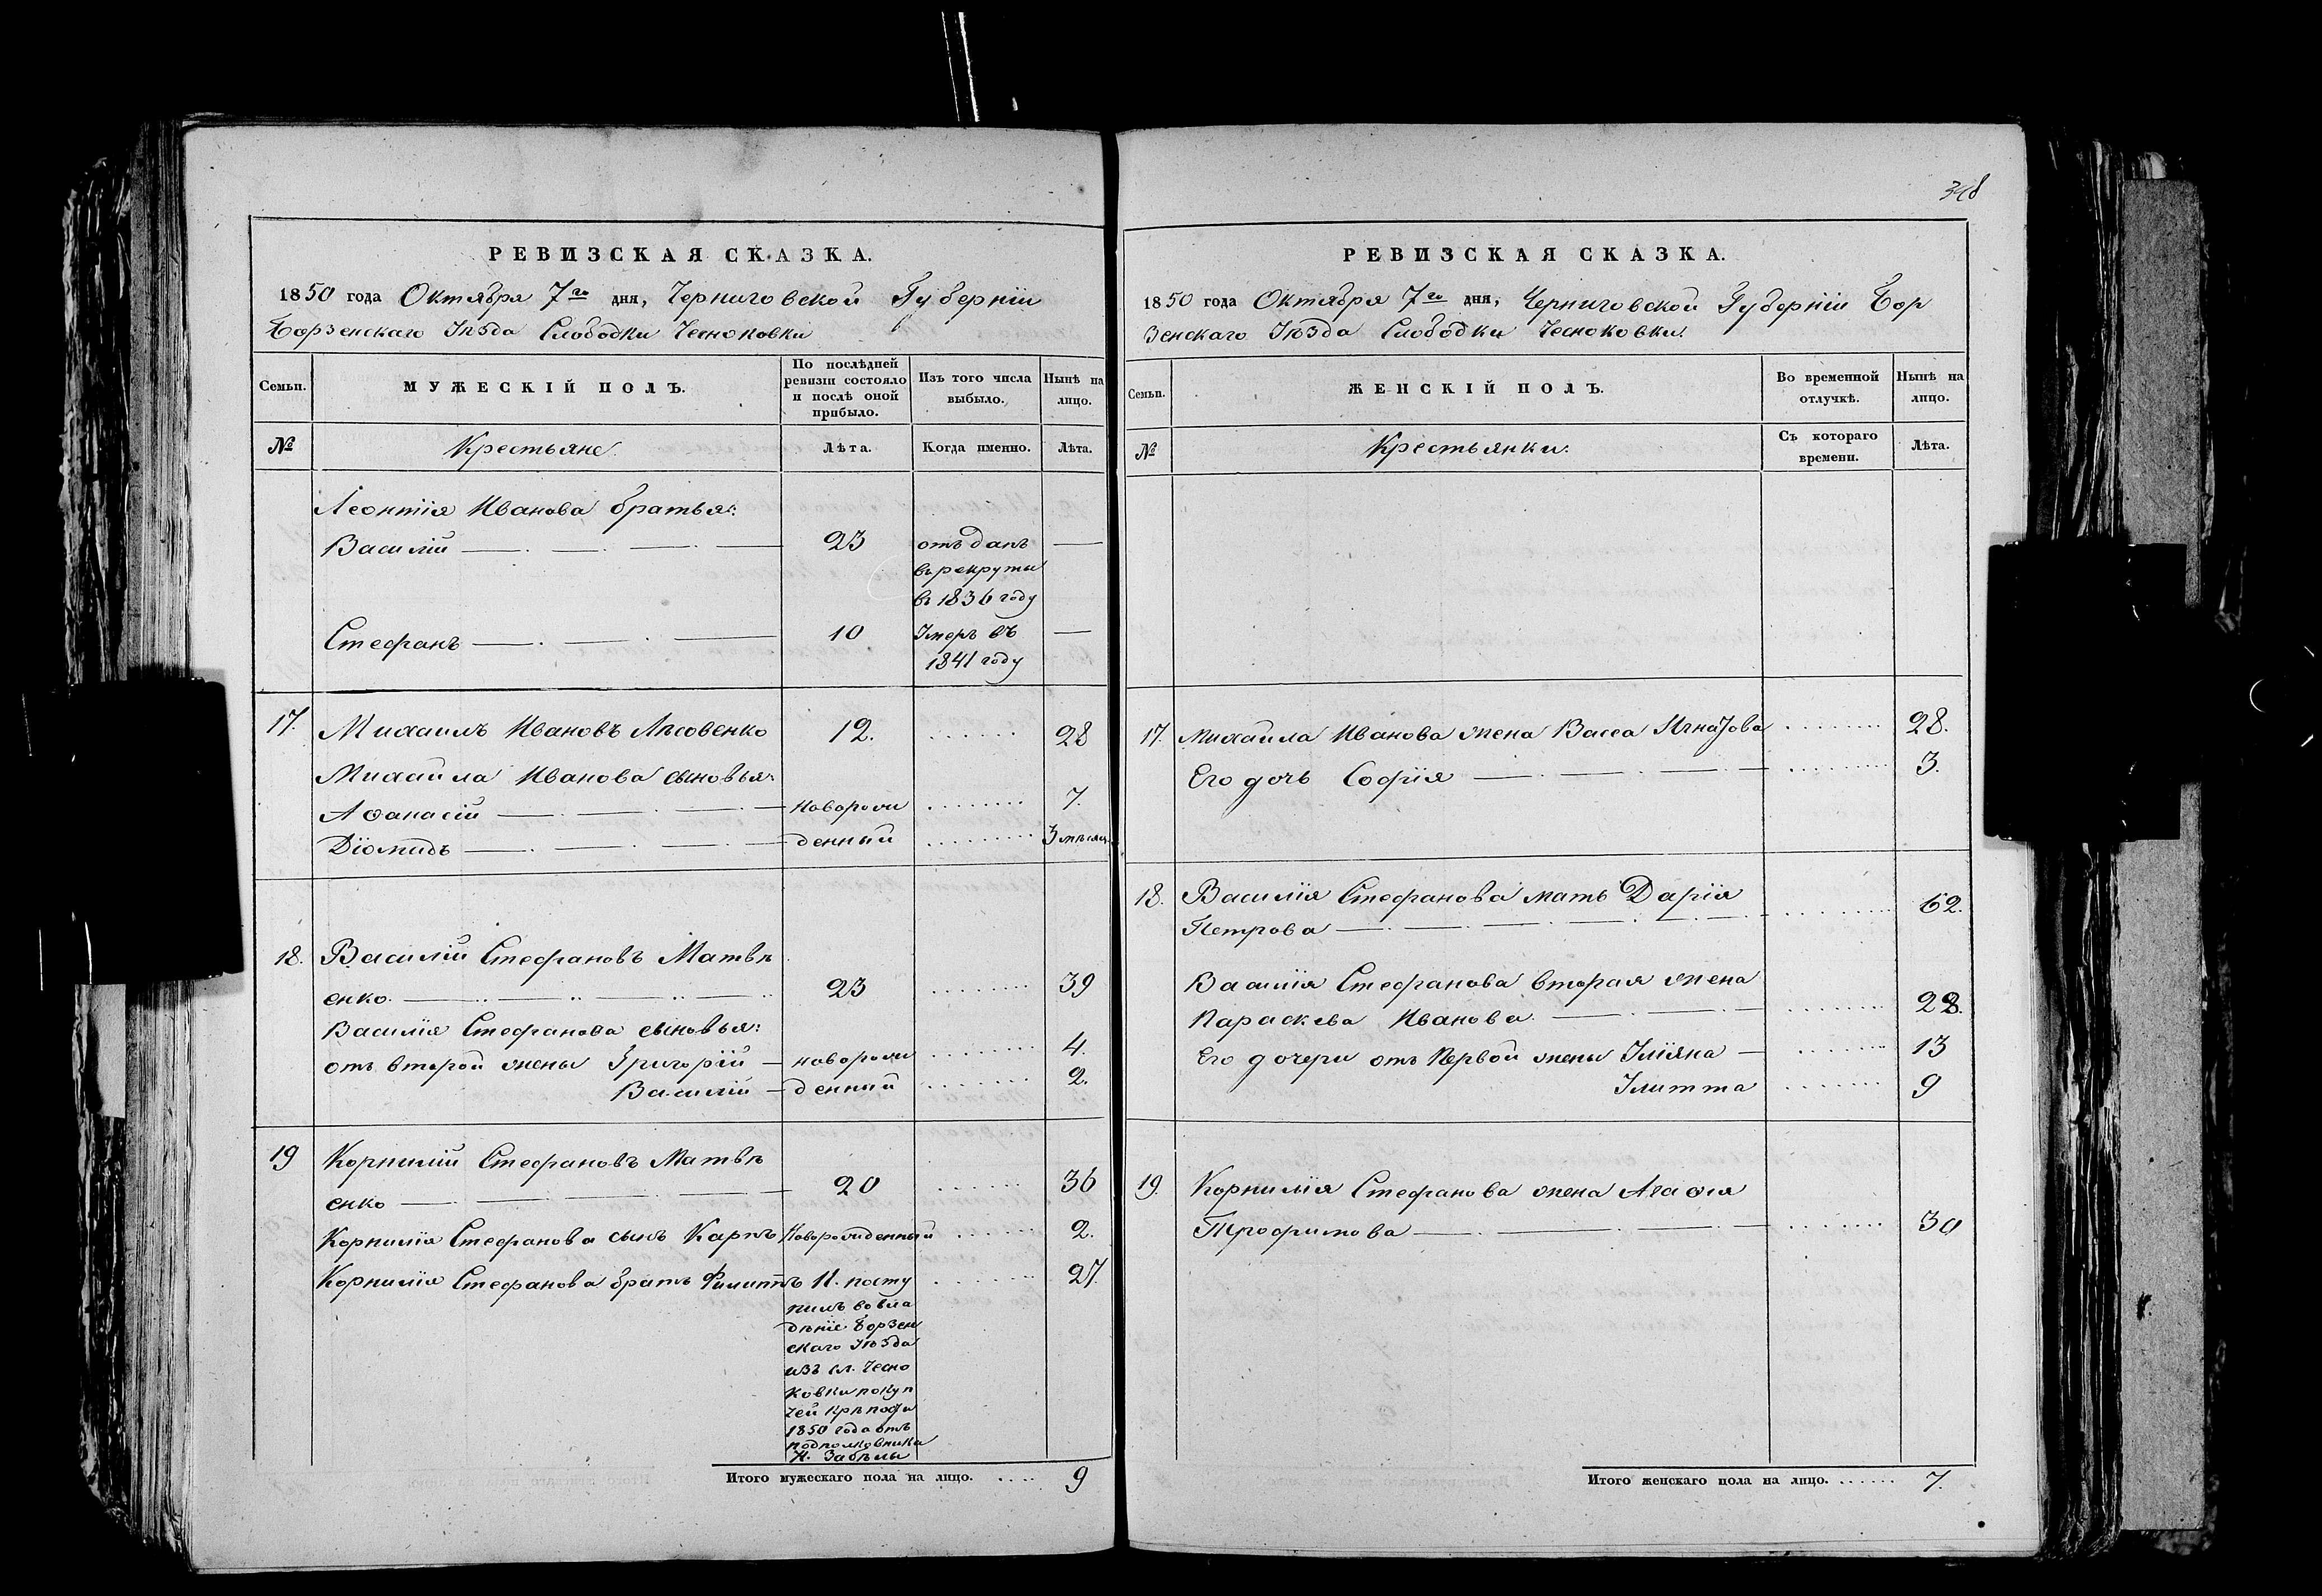 348
РЕВИЗСКАЯ СКАЗКА.
1850 года Октября 7го дня, Черниговской Губерніи
Борзенскаго Уѣзда Слободки Чесноковки
Семьи.
МУЖЕСКІЙ ПОЛЪ.
По послѣдней ревизіи состояло и послѣ оной прибыло.
Изъ того числа выбыло.
Нынѣ на лицо.
№
Крестьяне.
Лѣта.
Когда именно.
Лѣта.
Леонтія Иванова братья:
Василій 23 отъданъ
въ рекруты
въ 1836 году
Стефанъ 10 Умеръ въ
1841 году
17. Михаилъ Ивановъ Лѣсовенко 12. 28
Михаила Иванова сыновья:
Аѳанасій новорож 7.
Діомидъ денный 3 мѣсяц
18. Василій Стефановъ Матвѣ
енко. 23 39
Василія Стефанова сыновья:
отъ второй жены Григорій новорож 4.
Василій денный 2.
19 Корнилій Стефановъ Матвѣ
енко 20 36
Корнилія Стефанова сынъ Карпъ Новорожденный 2.
Корнилія Стефанова братъ Филиппъ 11. посту 27.
пилъ во вла
дѣніе Борзен
скаго Уѣзда
изъ сл. Чесно
ковки по куп
чей крѣпости
1850 года отъ
подполковника
Н. Забѣлы
Итого мужескаго пола на лицо. 9
РЕВИЗСКАЯ СКАЗКА.
1850 года Октября 7го дня, Черниговской Губерніи Бор
зенскаго Уѣзда Слободки Чесноковки.
Семьи.
ЖЕНСКІЙ ПОЛЪ.
Во временной отлучкѣ.
Нынѣ на лицо.
№
Крестьянки.
Съ котораго времени.
Лѣта.
17. Михаила Иванова жена Васса Игнатова 28.
Его дочь Софія 3.
18. Василія Стефанова мать Дарія
Петрова 62.
Василія Стефанова вторая жена
Параскева Иванова. 28.
Его дочери отъ первой жены Уліяна 13
Улитта 9
19. Корнилія Стефанова жена Агаѳія
Трофимова 30
Итого женскаго пола на лицо. 7.